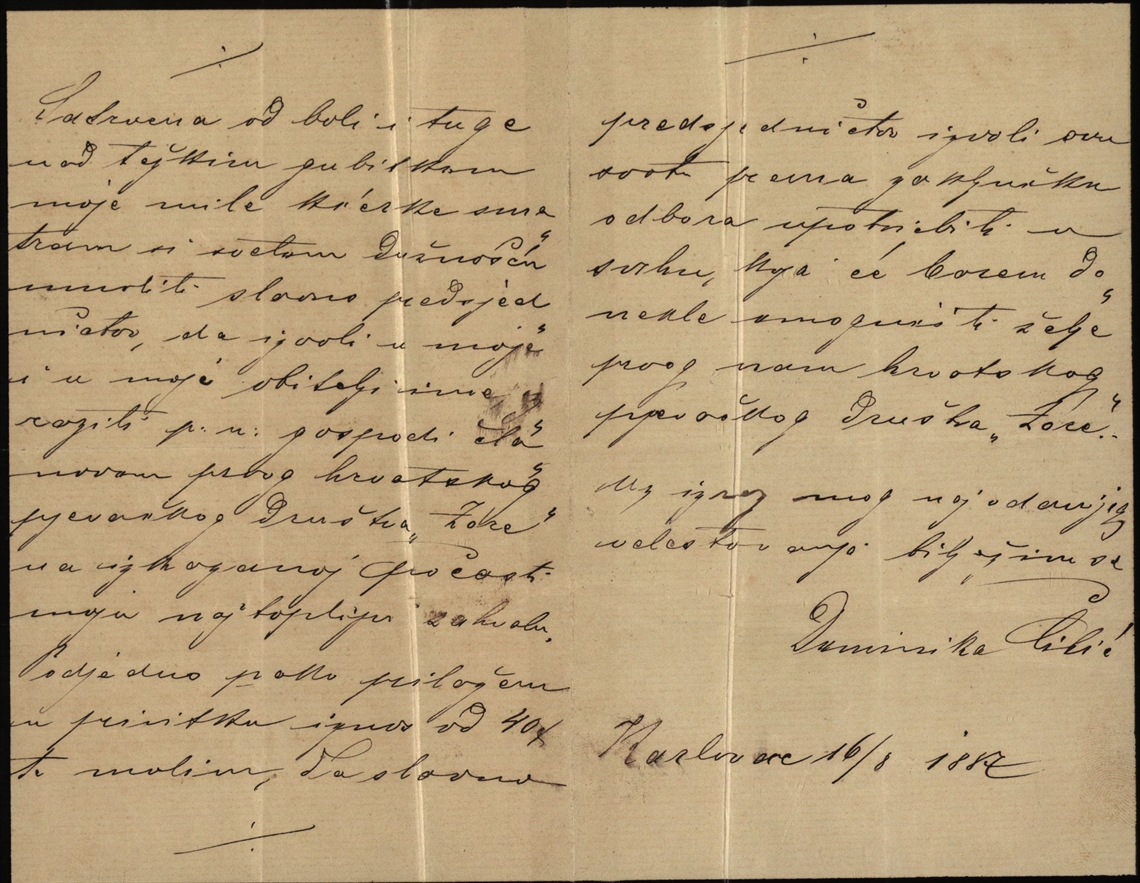 Satrvena od boli i tuge
nad teškim gubitkom
moje mile kćerke sma„
tram si svetom dužnošću
umoliti slavno predsjed„
ničtvo, da izvoli u moje
i u moje obitelji ime
izraziti p. n. gospodi čla„
novom prvog hrvatskog
pjevačkog družtva „Zore“
na izkazanoj počasti
moju najtopliju zahvalu.
Odjedno pako prilažem
u privitku iznos od 40 f
te molim, da slavno
predsjedničtvo izvoli ovu
svotu prema zaključku
odbora upotriebiti u
svrhu, koja će barem do„
nekle omogućiti želje
prvog nam hrvatskog
pjevačkog družtva „Zore“.
Uz izraz mog najodanijeg
veleštovanja bilježim se
Dominika
Karlovac 16/8 1887